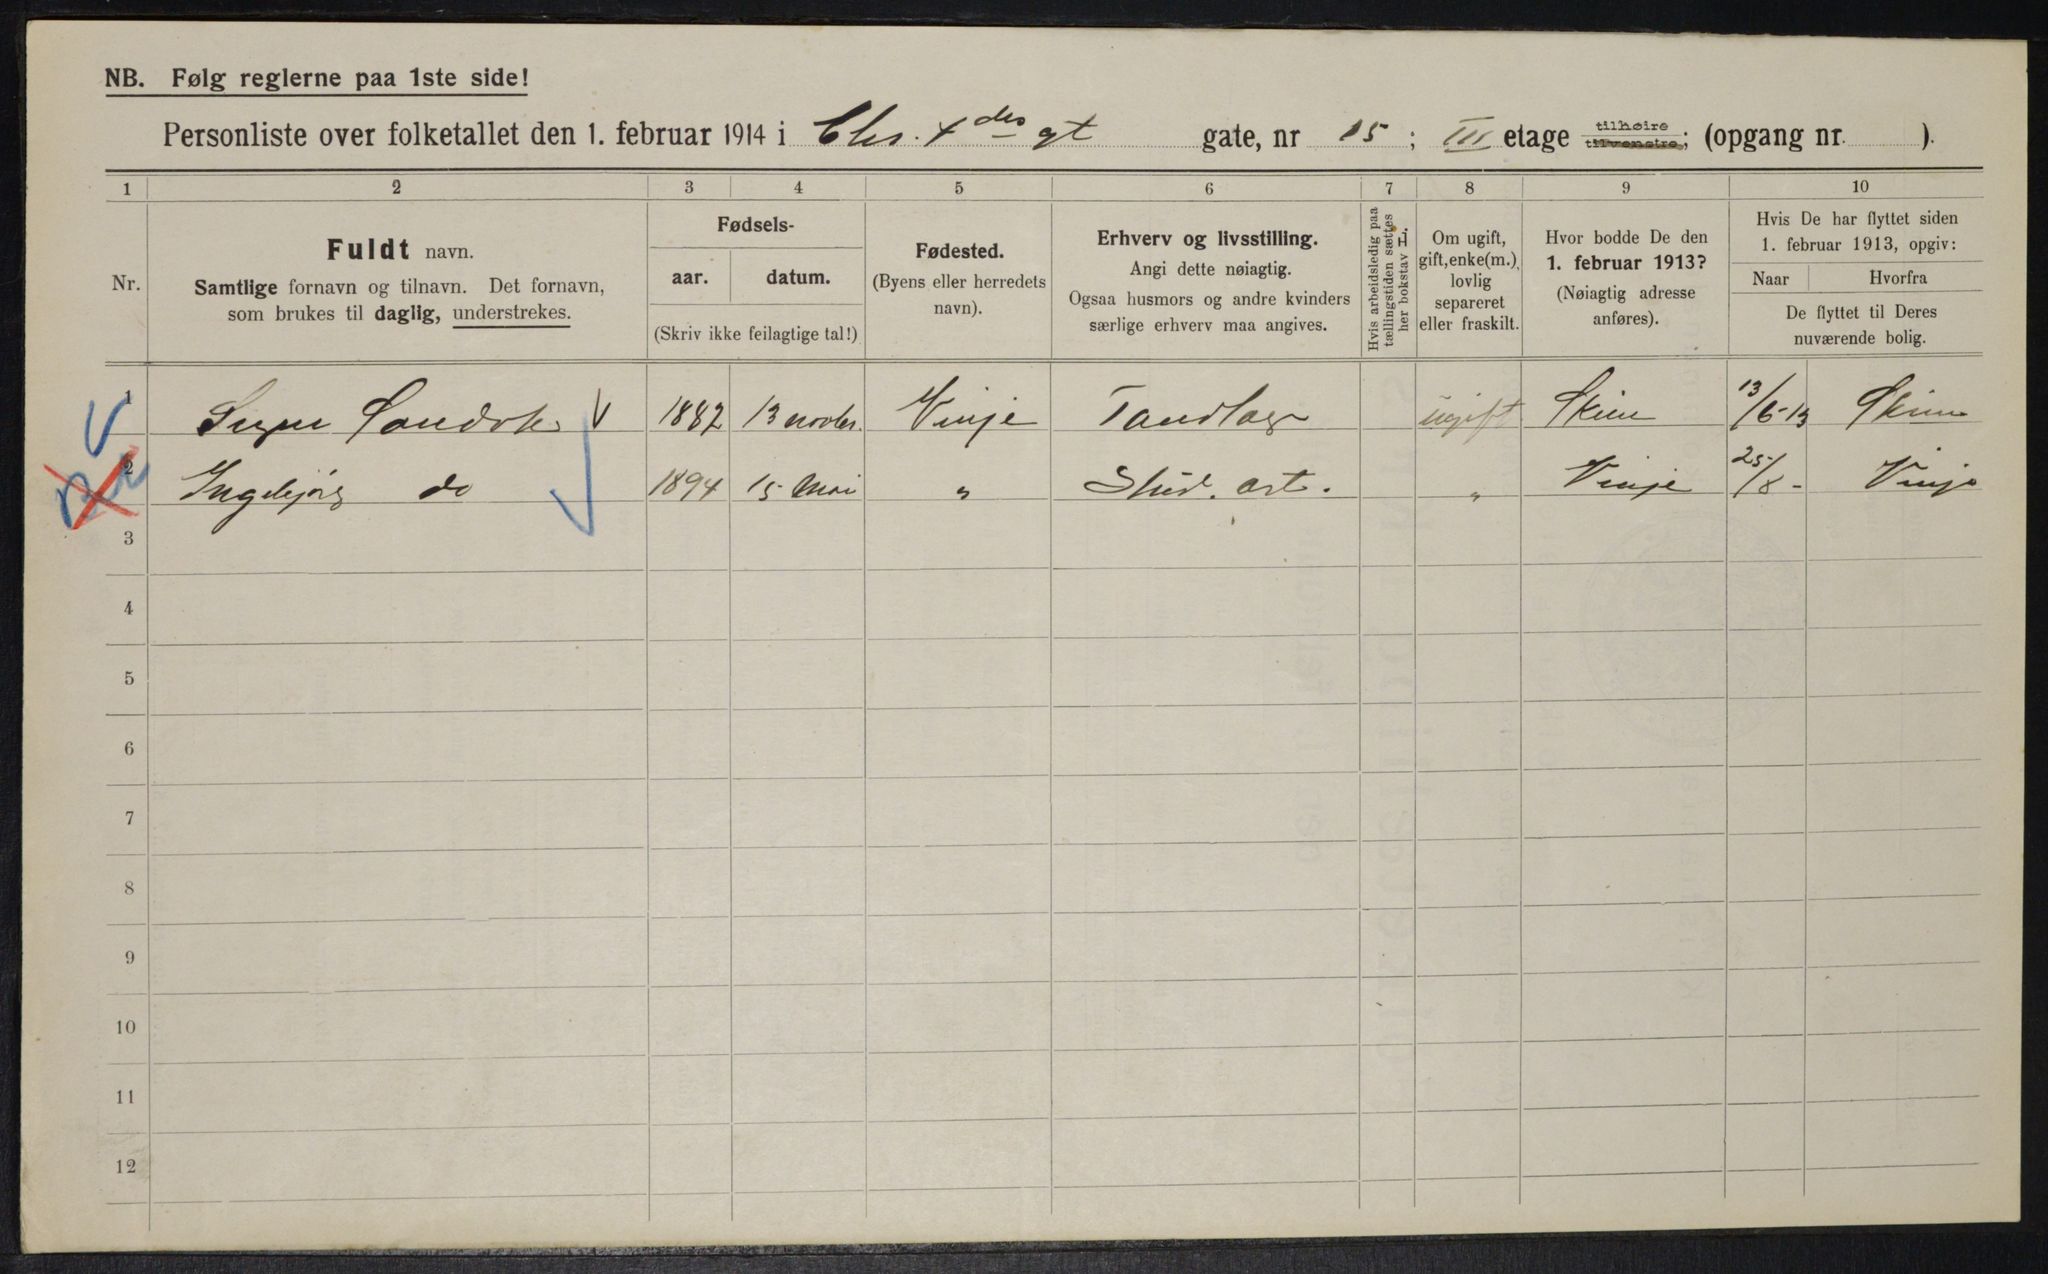 NB. Følg reglerne paa 1ste side!
Personliste over folketallet den 1. februar 1914 i Chr. 4des gt gate, nr 15; III etage tilhøire tilvenstre; (opgang nr. ).
1 2 3 4 5 6 7 8 9 10
Nr.
Fuldt navn.
Samtlige fornavn og tilnavn. Det fornavn,
som brukes til daglig, understrekes.
Fødsels-
aar. datum.
(Skriv ikke feilagtige tal!)
Fødested.
(Byens eller herredets
navn).
Erhverv og livsstilling.
Angi dette nøiagtig.
Ogsaa husmors og andre kvinders
særlige erhverv maa angives.
Hvis arbeidsledig paa
tællingstiden sættes
her bokstav L.
Om ugift,
gift, enke(m.),
lovlig
separeret
eller fraskilt.
Hvor bodde De den
1. februar 1913?
(Nøiagtig adresse
anføres).
Hvis De har flyttet siden
1. februar 1913, opgiv:
Naar Hvorfra
De flyttet til Deres
nuværende bolig.
1 Sandok 1882 13 novbr. Vinje Tandlæge ugift Skien 13/6-13 Skien
2 Ingebjørg do 1894 15 Mai " Stud. art. " Vinje 25/8- Vinje
3
4
5
6
7
8
9
10
11
12